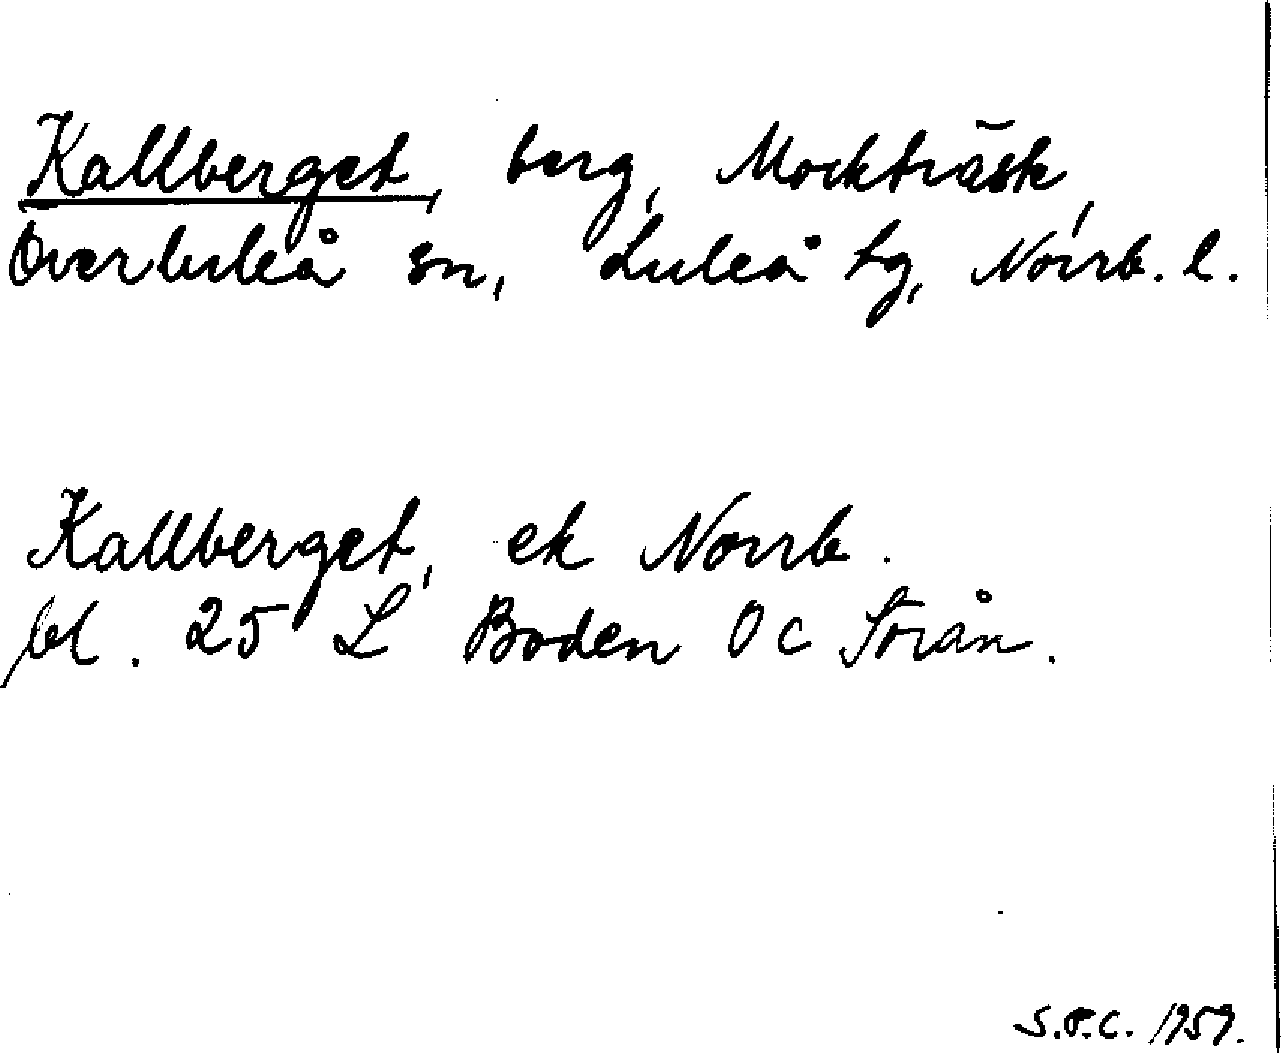 Kallberget, berg, Mockträsk,
Överluleå sn, Luleå tg, Norrb. l.
Kallberget, ek Norrb.
bl. 25 L Boden 0 c Storån.
S.P.C. 1959.